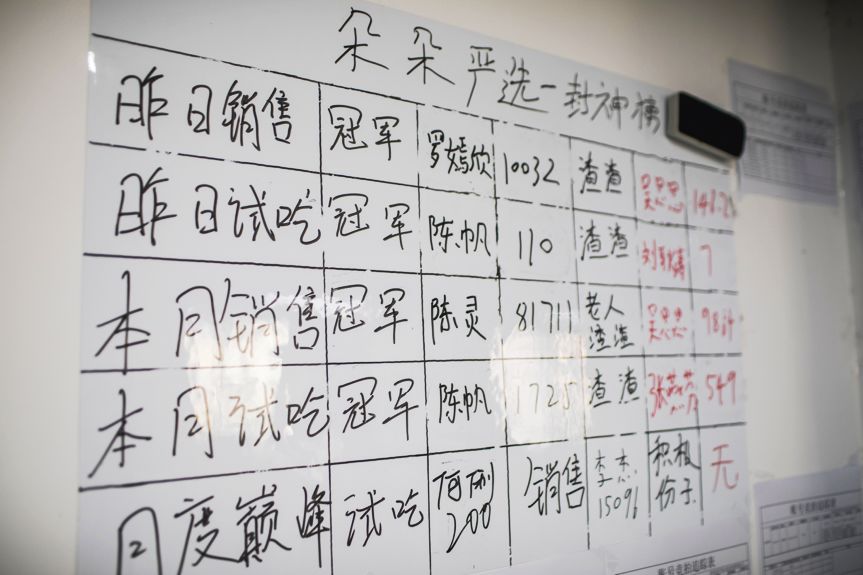 朵朵严选-封神榜
昨日销售 冠军 罗嫣欣 10032 渣渣 吴思思
昨日试吃 冠军 陈帆 110 渣渣 7
本月销售 冠军 陈灵 81711 老人渣渣 吴思思
本月试吃 冠军 陈帆 1725 渣渣 549
月度巅峰 试吃 200 销售 李杰 15096 积极份子 无